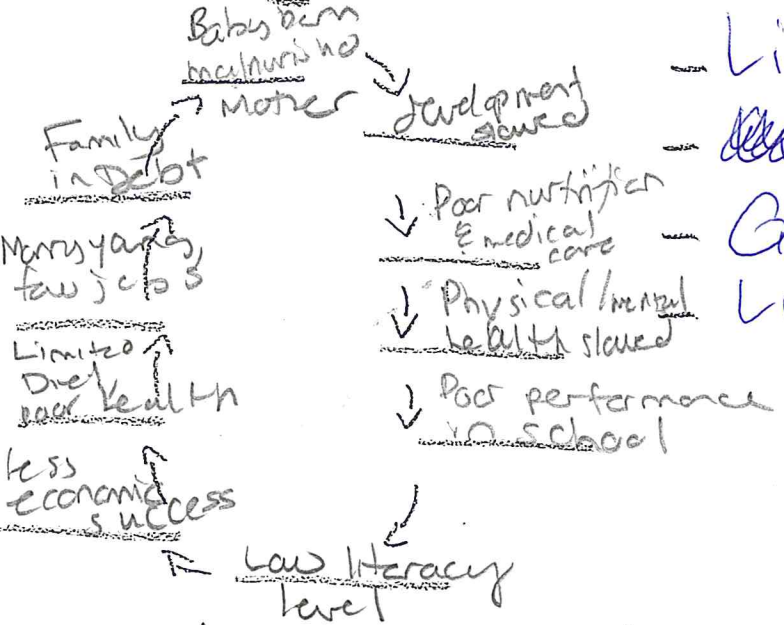 Baby born
malnurishd
Mother
development
slowed
Poor nutrition
& medical
care
Physical/mental
health slowed
Poor performance
in school
Low literacy
level
less
economic
success
Limited
Diet
poor health
Marry young,
few jobs
Family
in Debt
- Li
-
- G
Li